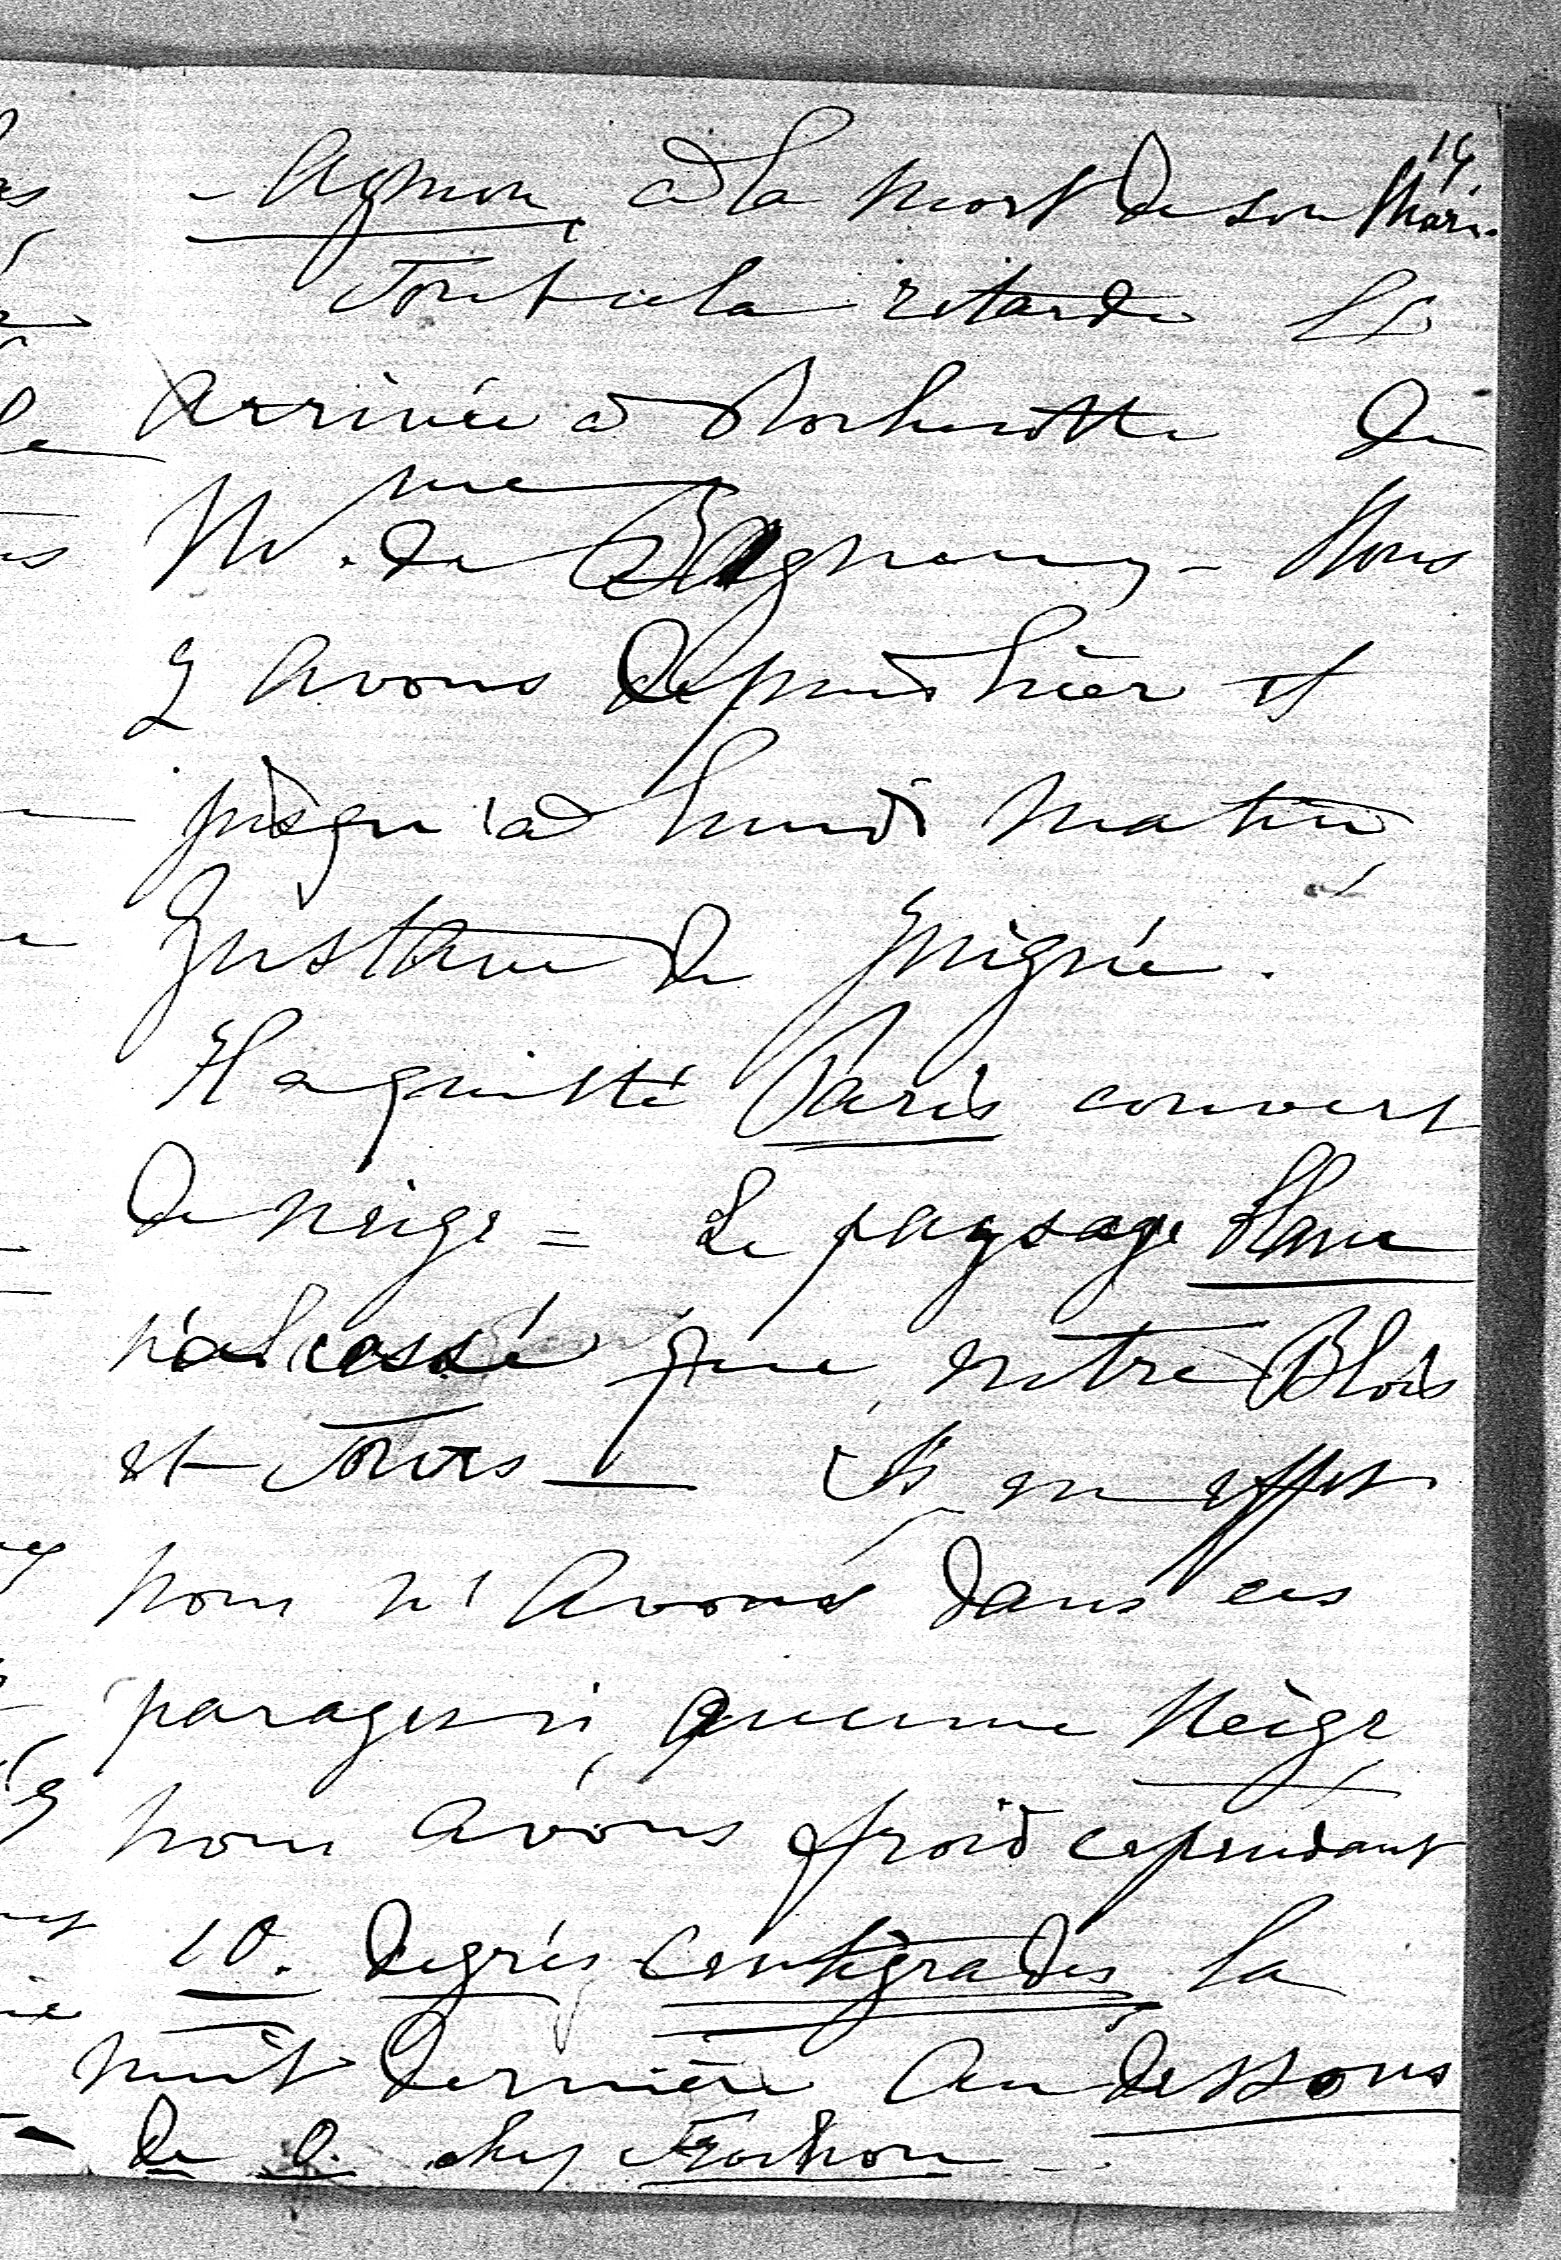 14
- Agnon, à la mort de son Mari.
Tout cela retarde l'
arrivée à Rochecotte de
Mme. de Bagneux - Nous
y avons depuis hier et
jusqu'à lundi matin,
Gustave de
Il a quitté Paris couvert
de neige = Le paysage blanc
n'a cessé que, entre Blois
et Tours — Et en effet
nous n'avons dans ces
parages ni, aucune Neige,
nous avons froid cependant
10. degrés centigrades, la
nuit dernière au dessous
de 0. chez